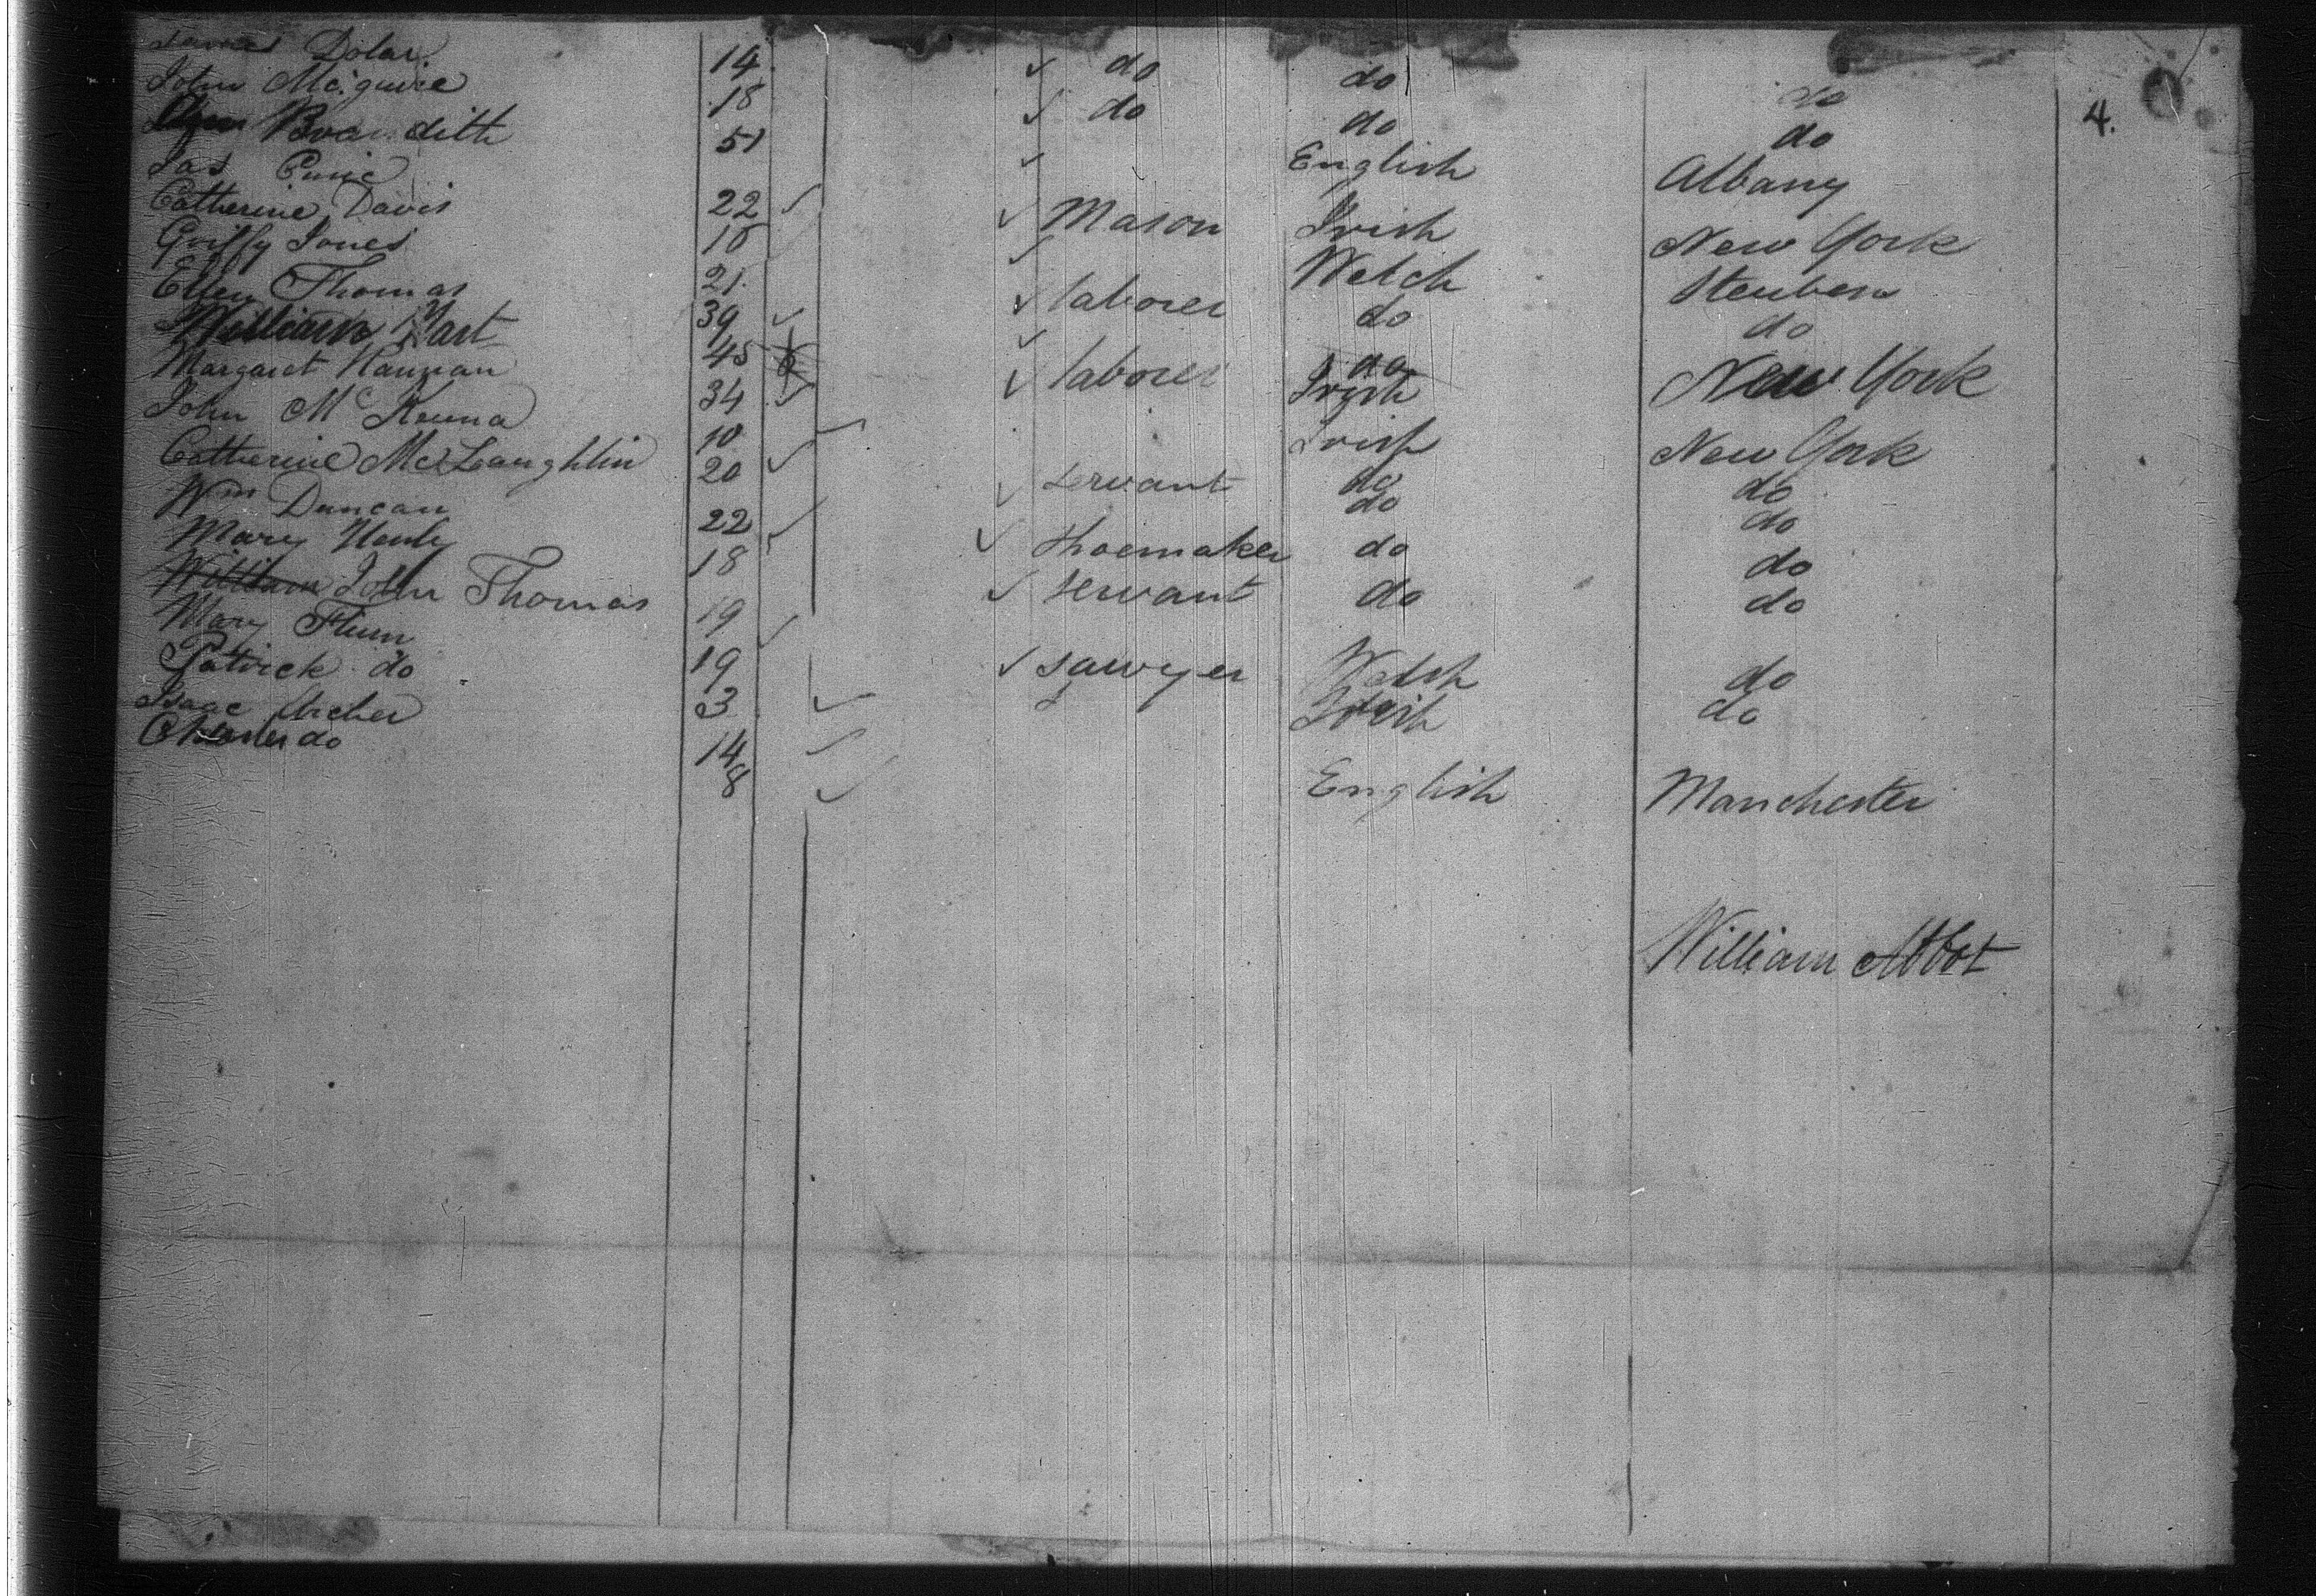 James Dolan 14 do do do
John McGuire 18 do do do 4.
Brandith 51 English Albany
Jas 22 Mason Irish New York
Catherine Davis 18 Welch Steuben
Griffy Jones 21 laborer do do
Ellen Thomas 39 do
William Hart 45 laborer Irish New York
Margaret Hannan 34 Irish New York
John McKenna 10 do do
Catherine McLaughlin 20 servant do do
Wm Duncan 22 Shoemaker do do
Mary 18 servant do do
William John Thomas 19 sawyer Welsh do
Mary Flum 19 Irish do
Patrick do 3
Isaac Archer 14 English Manchester
Charles do 8
William Abbot